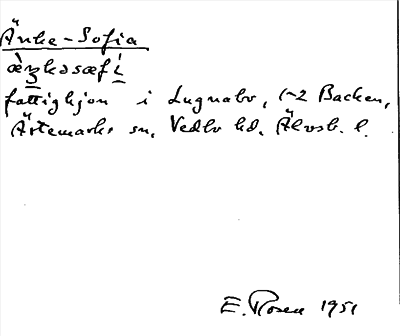 Änke-Sofia
fattighjon i Lugnabo, 1-2 Backen,
Ärtemarks sn, Vedbo hd, Älvsb. l.
E. Rosen 1951